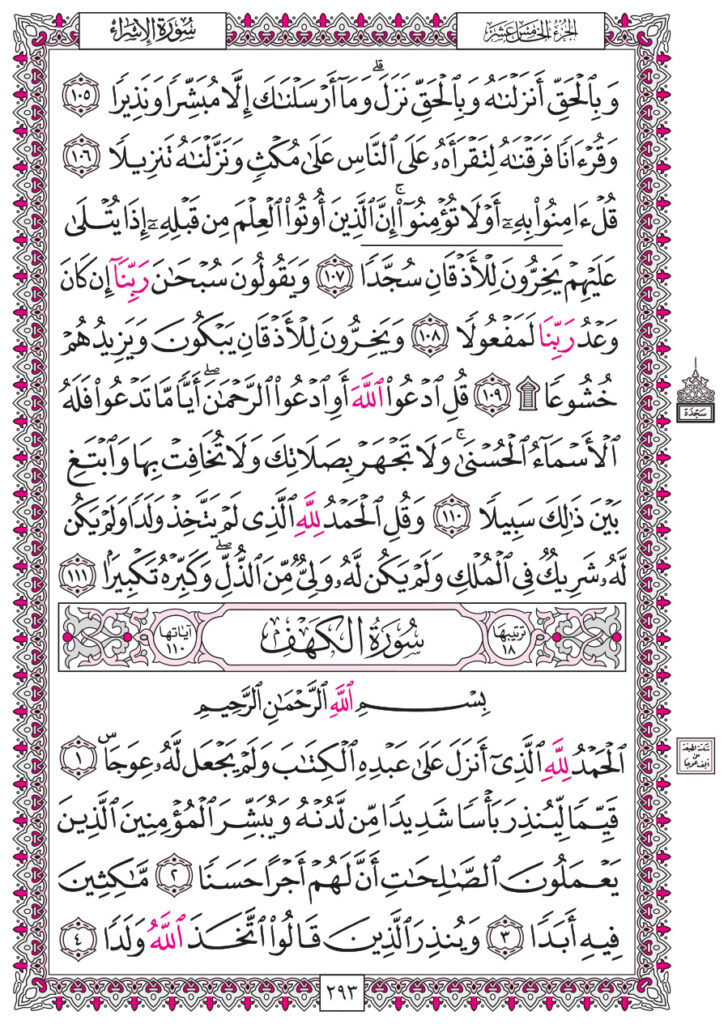 الجزء الخامس عشر
سورة الإسراء
وَبِٱلْحَقِّ أَنزَلْنَٰهُ وَبِٱلْحَقِّ نَزَلَ ۗ وَمَآ أَرْسَلْنَٰكَ إِلَّا مُبَشِّرًا وَنَذِيرًا ١٠٥
وَقُرْءَانًا فَرَقْنَٰهُ لِتَقْرَأَهُۥ عَلَى ٱلنَّاسِ عَلَىٰ مُكْثٍ وَنَزَّلْنَٰهُ تَنزِيلًا ١٠٦
قُلْ ءَامِنُوا۟ بِهِۦٓ أَوْ لَا تُؤْمِنُوٓا۟ ۚ إِنَّ ٱلَّذِينَ أُوتُوا۟ ٱلْعِلْمَ مِن قَبْلِهِۦٓ إِذَا يُتْلَىٰ
عَلَيْهِمْ يَخِرُّونَ لِلْأَذْقَانِ سُجَّدًا ١٠٧ وَيَقُولُونَ سُبْحَٰنَ رَبِّنَآ إِن كَانَ
وَعْدُ رَبِّنَا لَمَفْعُولًا ١٠٨ وَيَخِرُّونَ لِلْأَذْقَانِ يَبْكُونَ وَيَزِيدُهُمْ
خُشُوعًا ۩ ١٠٩ قُلِ ٱدْعُوا۟ ٱللَّهَ أَوِ ٱدْعُوا۟ ٱلرَّحْمَٰنَ ۖ أَيًّا مَّا تَدْعُوا۟ فَلَهُ
ٱلْأَسْمَآءُ ٱلْحُسْنَىٰ ۚ وَلَا تَجْهَرْ بِصَلَاتِكَ وَلَا تُخَافِتْ بِهَا وَٱبْتَغِ
بَيْنَ ذَٰلِكَ سَبِيلًا ١١٠ وَقُلِ ٱلْحَمْدُ لِلَّهِ ٱلَّذِى لَمْ يَتَّخِذْ وَلَدًا وَلَمْ يَكُن
لَّهُۥ شَرِيكٌ فِى ٱلْمُلْكِ وَلَمْ يَكُن لَّهُۥ وَلِىٌّ مِّنَ ٱلذُّلِّ ۖ وَكَبِّرْهُ تَكْبِيرًۢا ١١١
ترتيبها ١٨
سورة الكهف
آياتها ١١٠
بِسْمِ ٱللَّهِ ٱلرَّحْمَٰنِ ٱلرَّحِيمِ
ٱلْحَمْدُ لِلَّهِ ٱلَّذِىٓ أَنزَلَ عَلَىٰ عَبْدِهِ ٱلْكِتَٰبَ وَلَمْ يَجْعَل لَّهُۥ عِوَجَاۜ ١
قَيِّمًا لِّيُنذِرَ بَأْسًا شَدِيدًا مِّن لَّدُنْهُ وَيُبَشِّرَ ٱلْمُؤْمِنِينَ ٱلَّذِينَ
يَعْمَلُونَ ٱلصَّٰلِحَٰتِ أَنَّ لَهُمْ أَجْرًا حَسَنًا ٢ مَّٰكِثِينَ
فِيهِ أَبَدًا ٣ وَيُنذِرَ ٱلَّذِينَ قَالُوا۟ ٱتَّخَذَ ٱللَّهُ وَلَدًا ٤
٢٩٣
سجدة